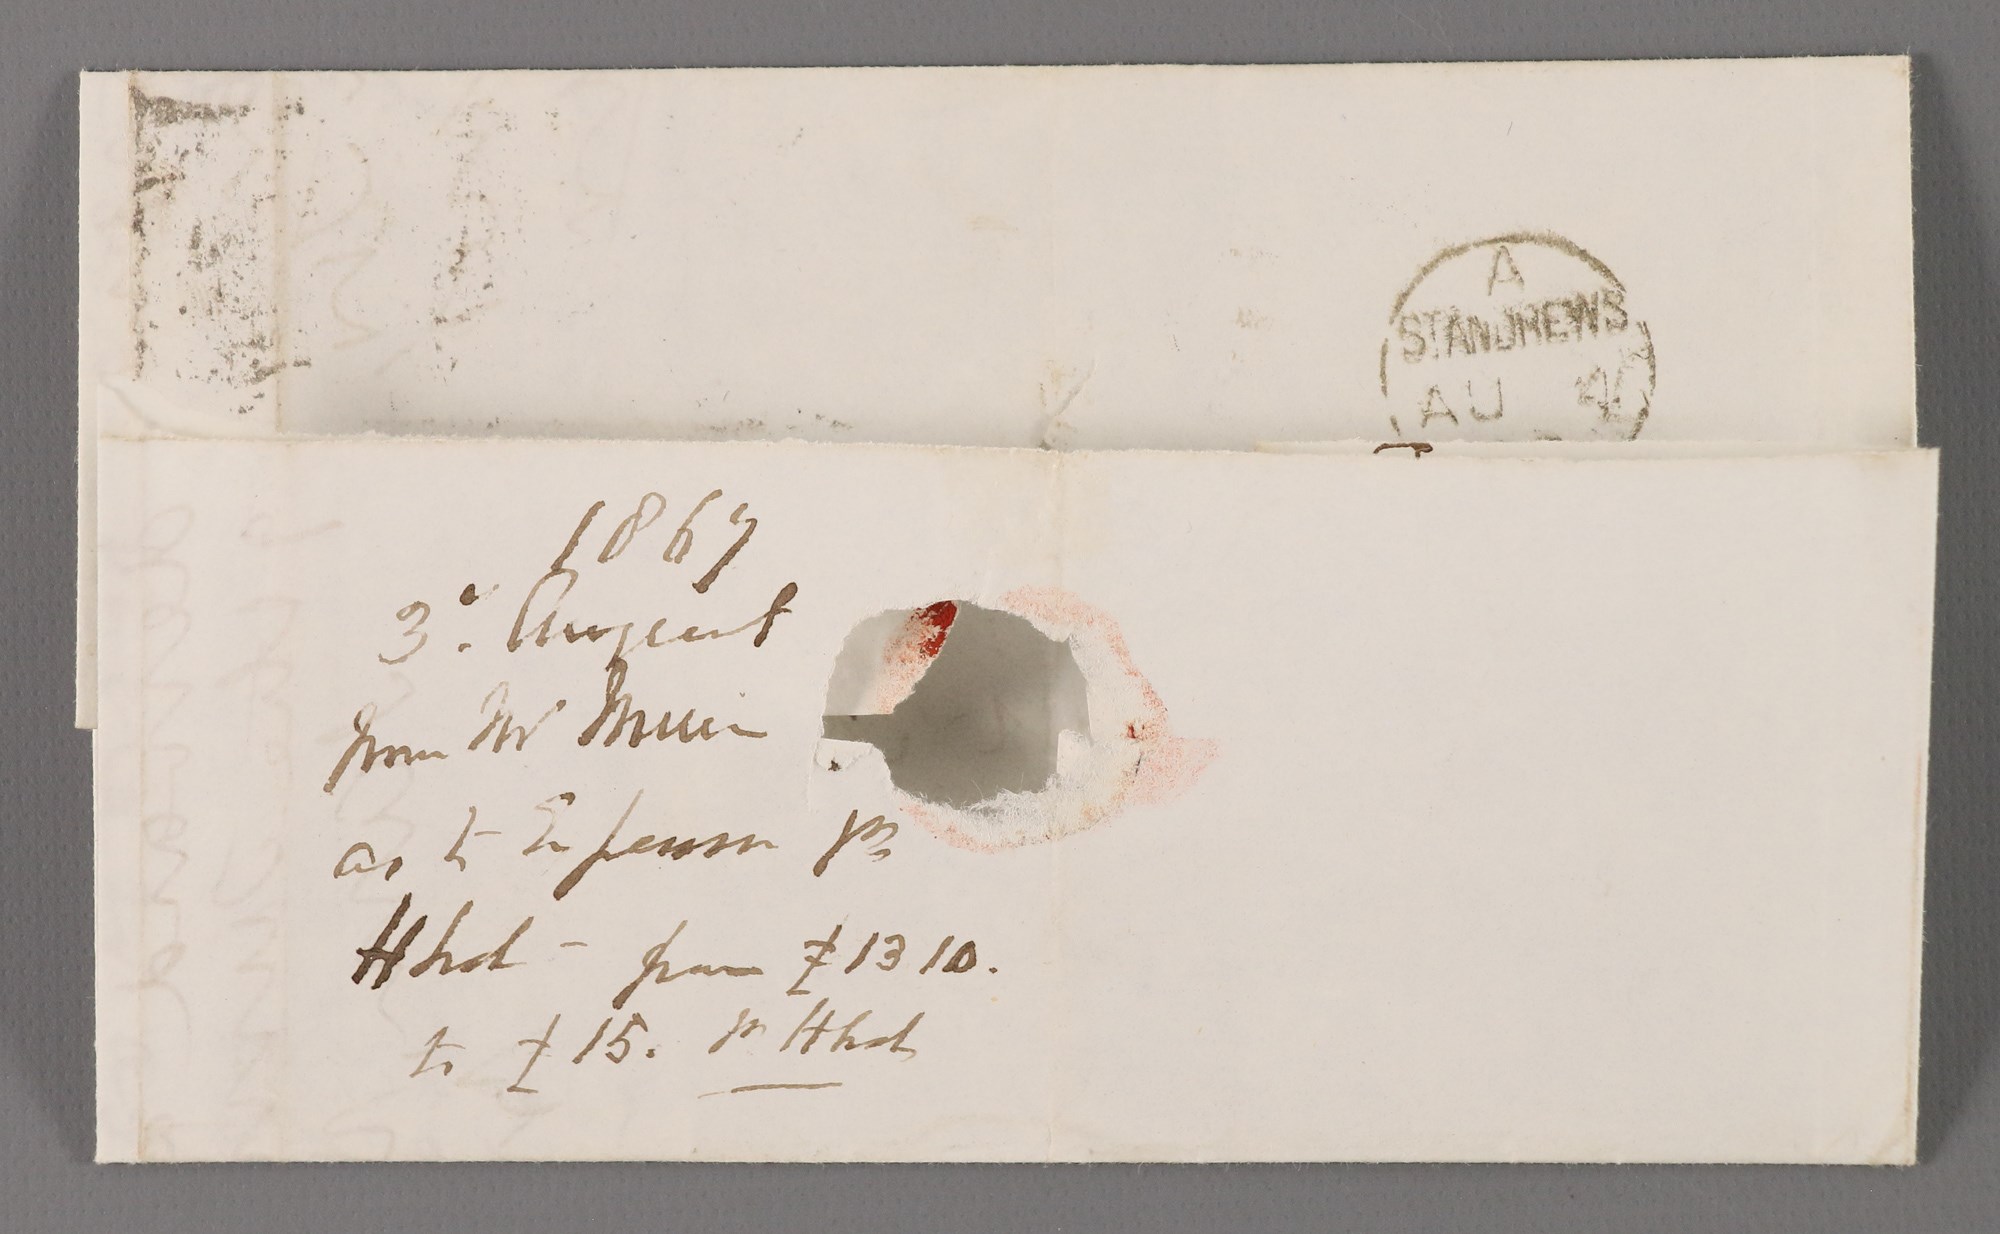 A
ST.ANDREWS
AU 4
1867
3d. August
from Mr Muir
as to Expense pr
Hhd - from £13 10.
to £15. pr Hhd